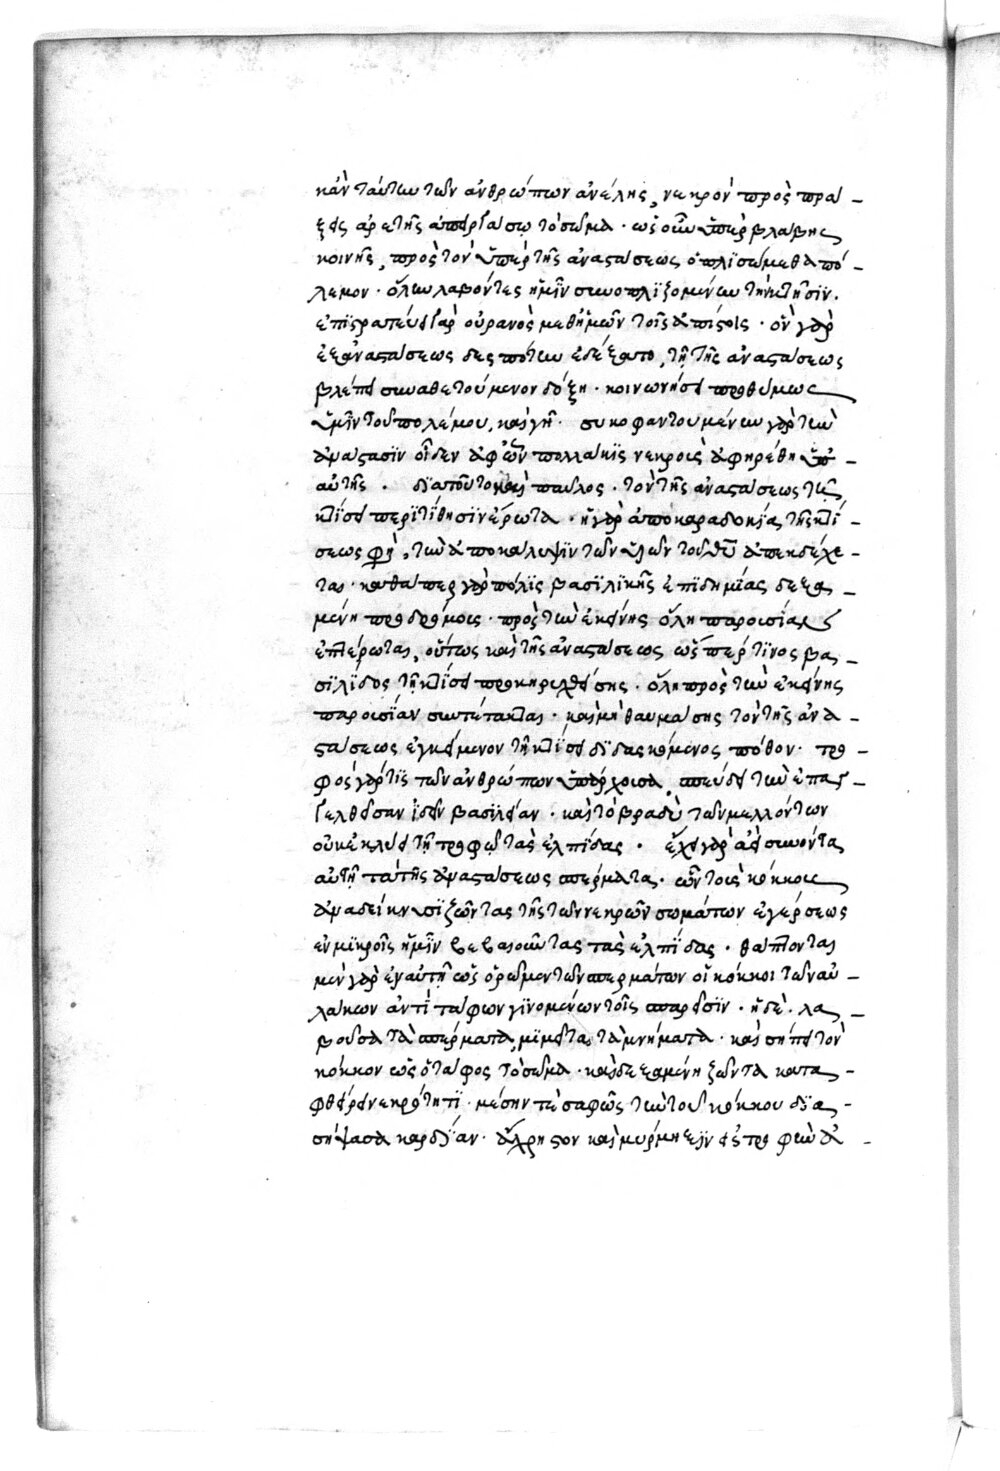 κἀν ταύτην τῶν ἀνθρώπων ἀνέλης, νεκρὸν πρὸς πρά-
ξεις ἀρετῆς ἀπειργάσω τὸ σῶμα. ὡς οὖν ὑπὲρ βλάβης
κοινῆς, πρὸς τὸν ὑπὲρ τῆς ἀναστάσεως ὁπλισώμεθα πό-
λεμον. ὅλην λαβόντες ἡμῖν συνοπλιζομένην τὴν κτῆσιν.
ἐπιστρατεύει γὰρ οὐρανὸς μεθ' ἡμῶν τοῖς ἀπίστοις. ὃν γὰρ
ἐξ ἀναστάσεως δεσπότην ἐδέξατο, τῇ τῆς ἀναστάσεως
βλέπει συναθετούμενον δόξῃ. κοινωνήσει προθύμως
ὑμῖν τοῦ πολέμου, καὶ γῆ. συκοφαντουμένην γὰρ τὴν
ἀνάστασιν οἶδεν ἀφ' ὧν πολλάκις νεκροὺς ἀφηρέθη ὑπ'
αὐτῆς. διαποῦτο καὶ παῦλος. τὸν τῆς ἀναστάσεως τῇ
κτίσει περιτίθησιν ἔρωτα. ἡ γὰρ ἀποκαραδοκία τῆς κτί-
σεως φησὶ, τὴν ἀποκάλυψιν τῶν υἱῶν τοῦ θυ ἀπεκδέχε-
ται. καθάπερ γὰρ πόλις βασιλικῆς ἐπιδημίας δεξα-
μένη προδρόμοις. πρὸς τὴν ἐκείνης ὅλη παρουσίαν
ἐπτέρωται, οὕτως καὶ τῆς ἀναστάσεως ὥσπερ τινος βα-
σιλίδος τῇ κτίσει προκηρυχθείσης. ὅλη πρὸς τὴν ἐκείνης
παρουσίαν συντέτακται. καὶ μὴ θαυμάσης τὸν τῆς ἀνα-
στάσεως ἐγκείμενον τῇ κτίσει διδασκόμενος πόθον. τρο-
φὸς γάρ τις τῶν ἀνθρώπων ὑπάρχουσα, σπεύδει τὴν ἐπαγ-
γελθεῖσαν ἰδεῖν βασιλείαν. καὶ τὸ βραδὺ τῶν μελλόντων
οὐκ ἐκλύει τῇ τροφῷ τὰς ἐλπίδας. ἔχει γὰρ ἀεὶ συνόντα
αὐτῇ τὰ τῆς ἀναστάσεως σπέρματα. ὧν τοῖς κόκκοις
ἀναδείκνυσι ζῶντας τῆς τῶν νεκρῶν σωμάτων ἐγέρσεως
ἐν μικροῖς ἡμῖν βεβαιοῦντας τὰς ἐλπίδας. θάπτονται
μὲν γὰρ ἐν αὐτῇ ὡς ὁρῶμεν τῶν σπερμάτων οἱ κόκκοι τῶν αὐ-
λάκων ἀντὶ τάφων γινομένων τοῖς σπαρεῖσιν. ἡ δὲ. λα-
βοῦσα τὰ σπέρματα, μιμεῖται τὰ μνήματα. καὶ σήπει τὸν
κόκκον ὡς ὁ τάφος τὸ σῶμα. καὶ δεξαμένη ζῶντα κατα-
φθείρει νεκρότητι. μέσην τε σαφῶς τὴν τοῦ κόκκου δια-
σήψασα καρδίαν. ἄχρηστον καὶ μύρμηξιν εἰς τροφὴν ἀ-